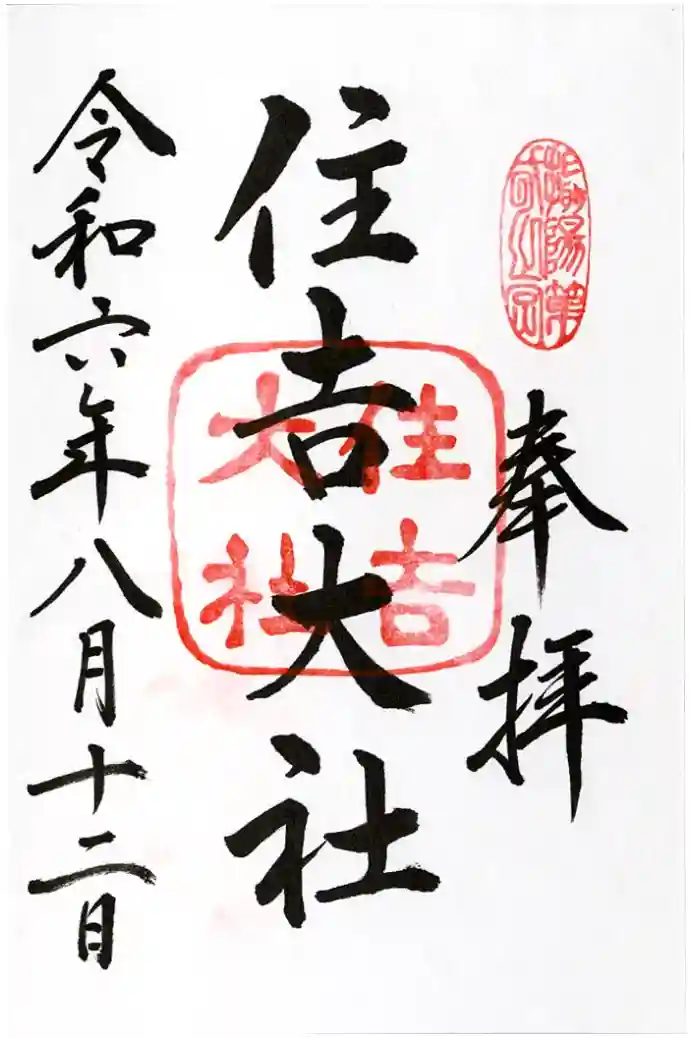 奉拝
住吉大社
住吉
大社
令和六年八月十二日